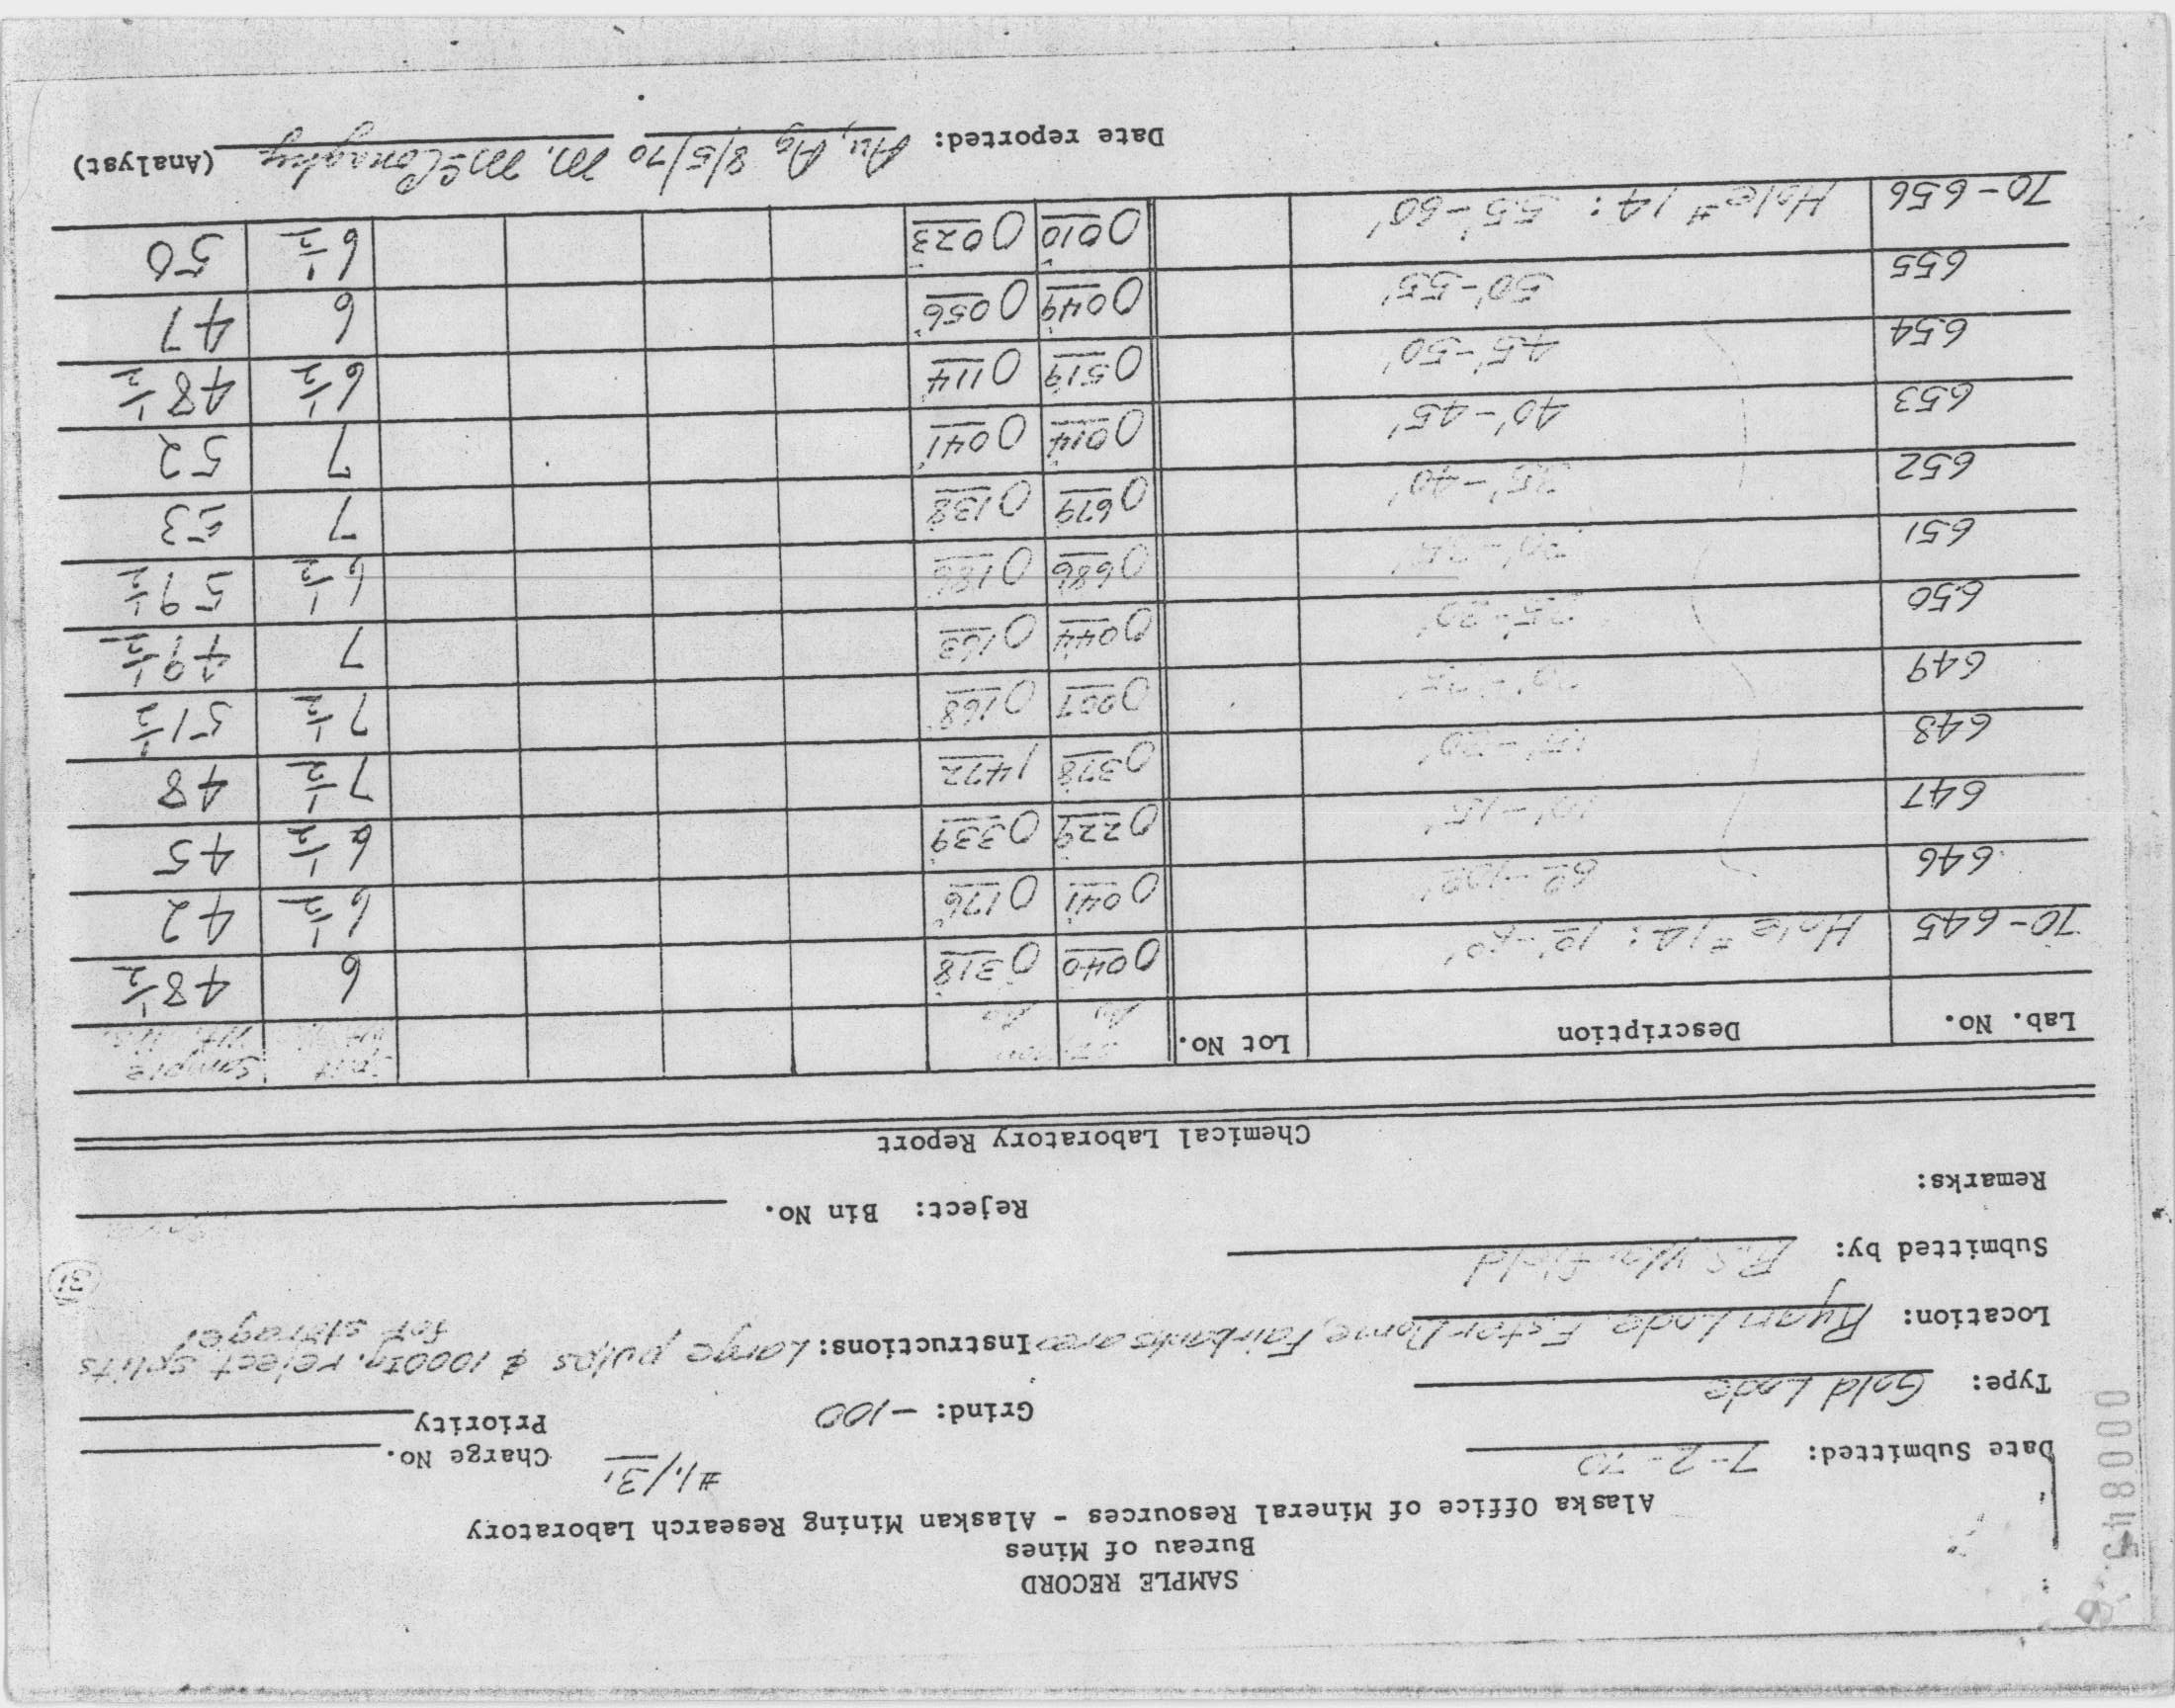 SAMPLE RECORD
Bureau of Mines
Alaska Office of Mineral Resources - Alaskan Mining Research Laboratory
000845
#1,/31
Date Submitted: 7-2-70 Charge No.
Type: Gold Lode Grind: -100 Priority
Location: Ryan Lode, Ester Dome, Fairbanks area Instructions: Large pulps & 1000g. reject splits
for storage,
Submitted by: R.S. Warfield
31
Remarks: Reject: Bin No.
Chemical Laboratory Report
Lab. No. Description Lot No. Au Ag Split Sample
70-645 Hole #14: 0040 0318 6 48 1/2
646 0041 0176 6 1/2 42
647 10'-15' 0229 0339 6 1/2 45
648 15'-20' 0378 1472 7 1/2 48
649 0907 0168 7 1/2 51 1/2
650 25'-30' 0044 0163 7 49 1/2
651 0686 0186 6 1/2 59 1/2
652 35'-40' 0679 0138 7 53
653 40'-45' 0014 0041 7 52
654 45'-50' 0519 0114 6 1/2 48 1/2
655 50'-55' 0049 0056 6 47
70-656 Hole #14: 55'-60' 0010 0023 6 1/2 50
Date reported: Au, Ag 8/5/70 M. McConaghy (Analyst)